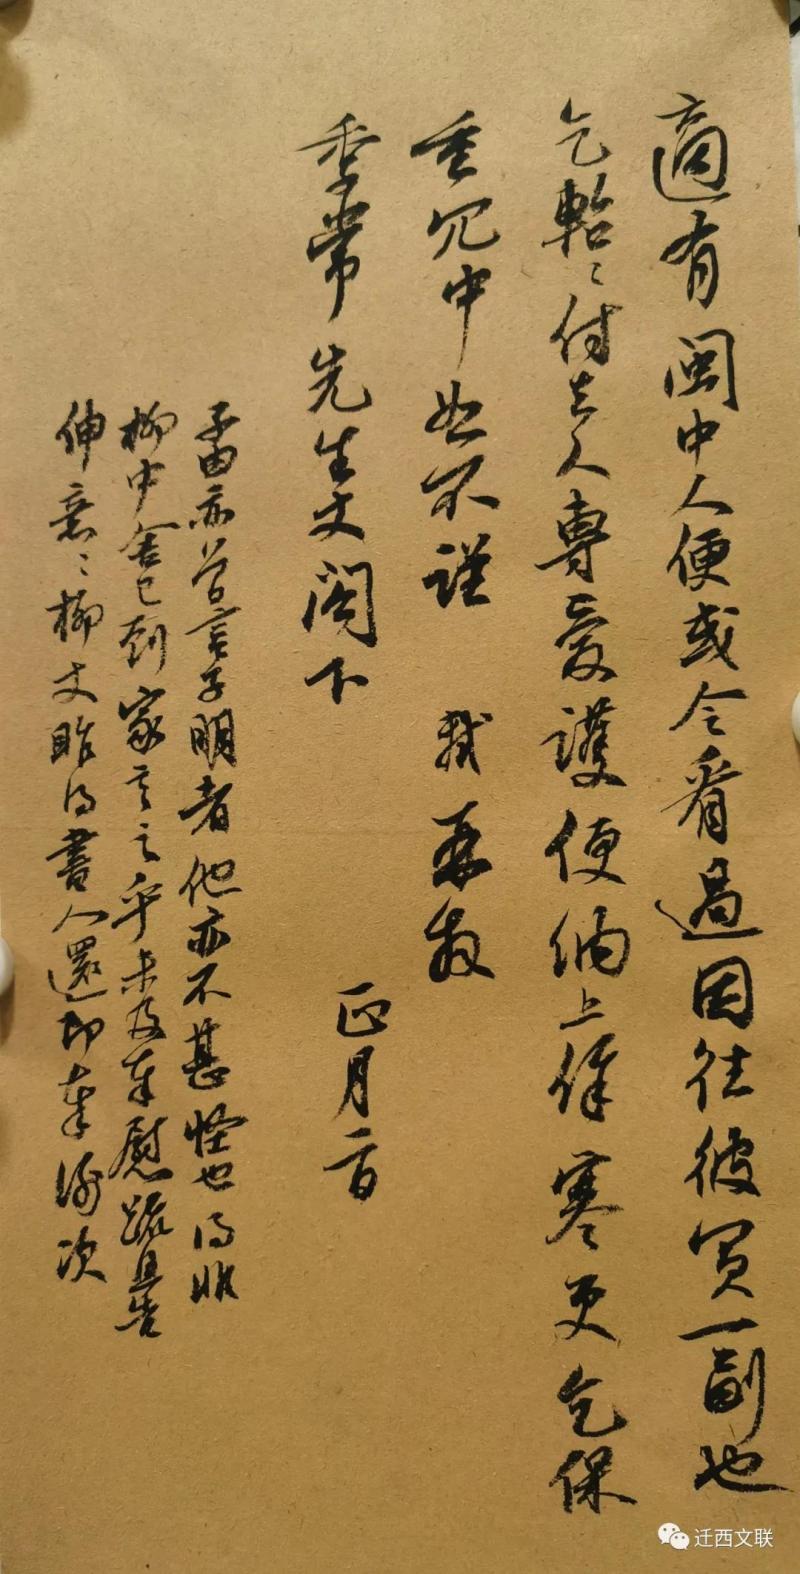 適有閩中人便或令看過因往彼買一副也
乞暫〻付去人專愛護便納上餘寒更乞保
重冗中恕不謹 軾再拜
季常先生丈閣下 正月二日
子由亦曾言方子明者他亦不甚怪也得非
柳中舍已到家言之乎未及奉慰疏且告
伸意〻柳丈昨得書人還即奉謝次
迁西文联